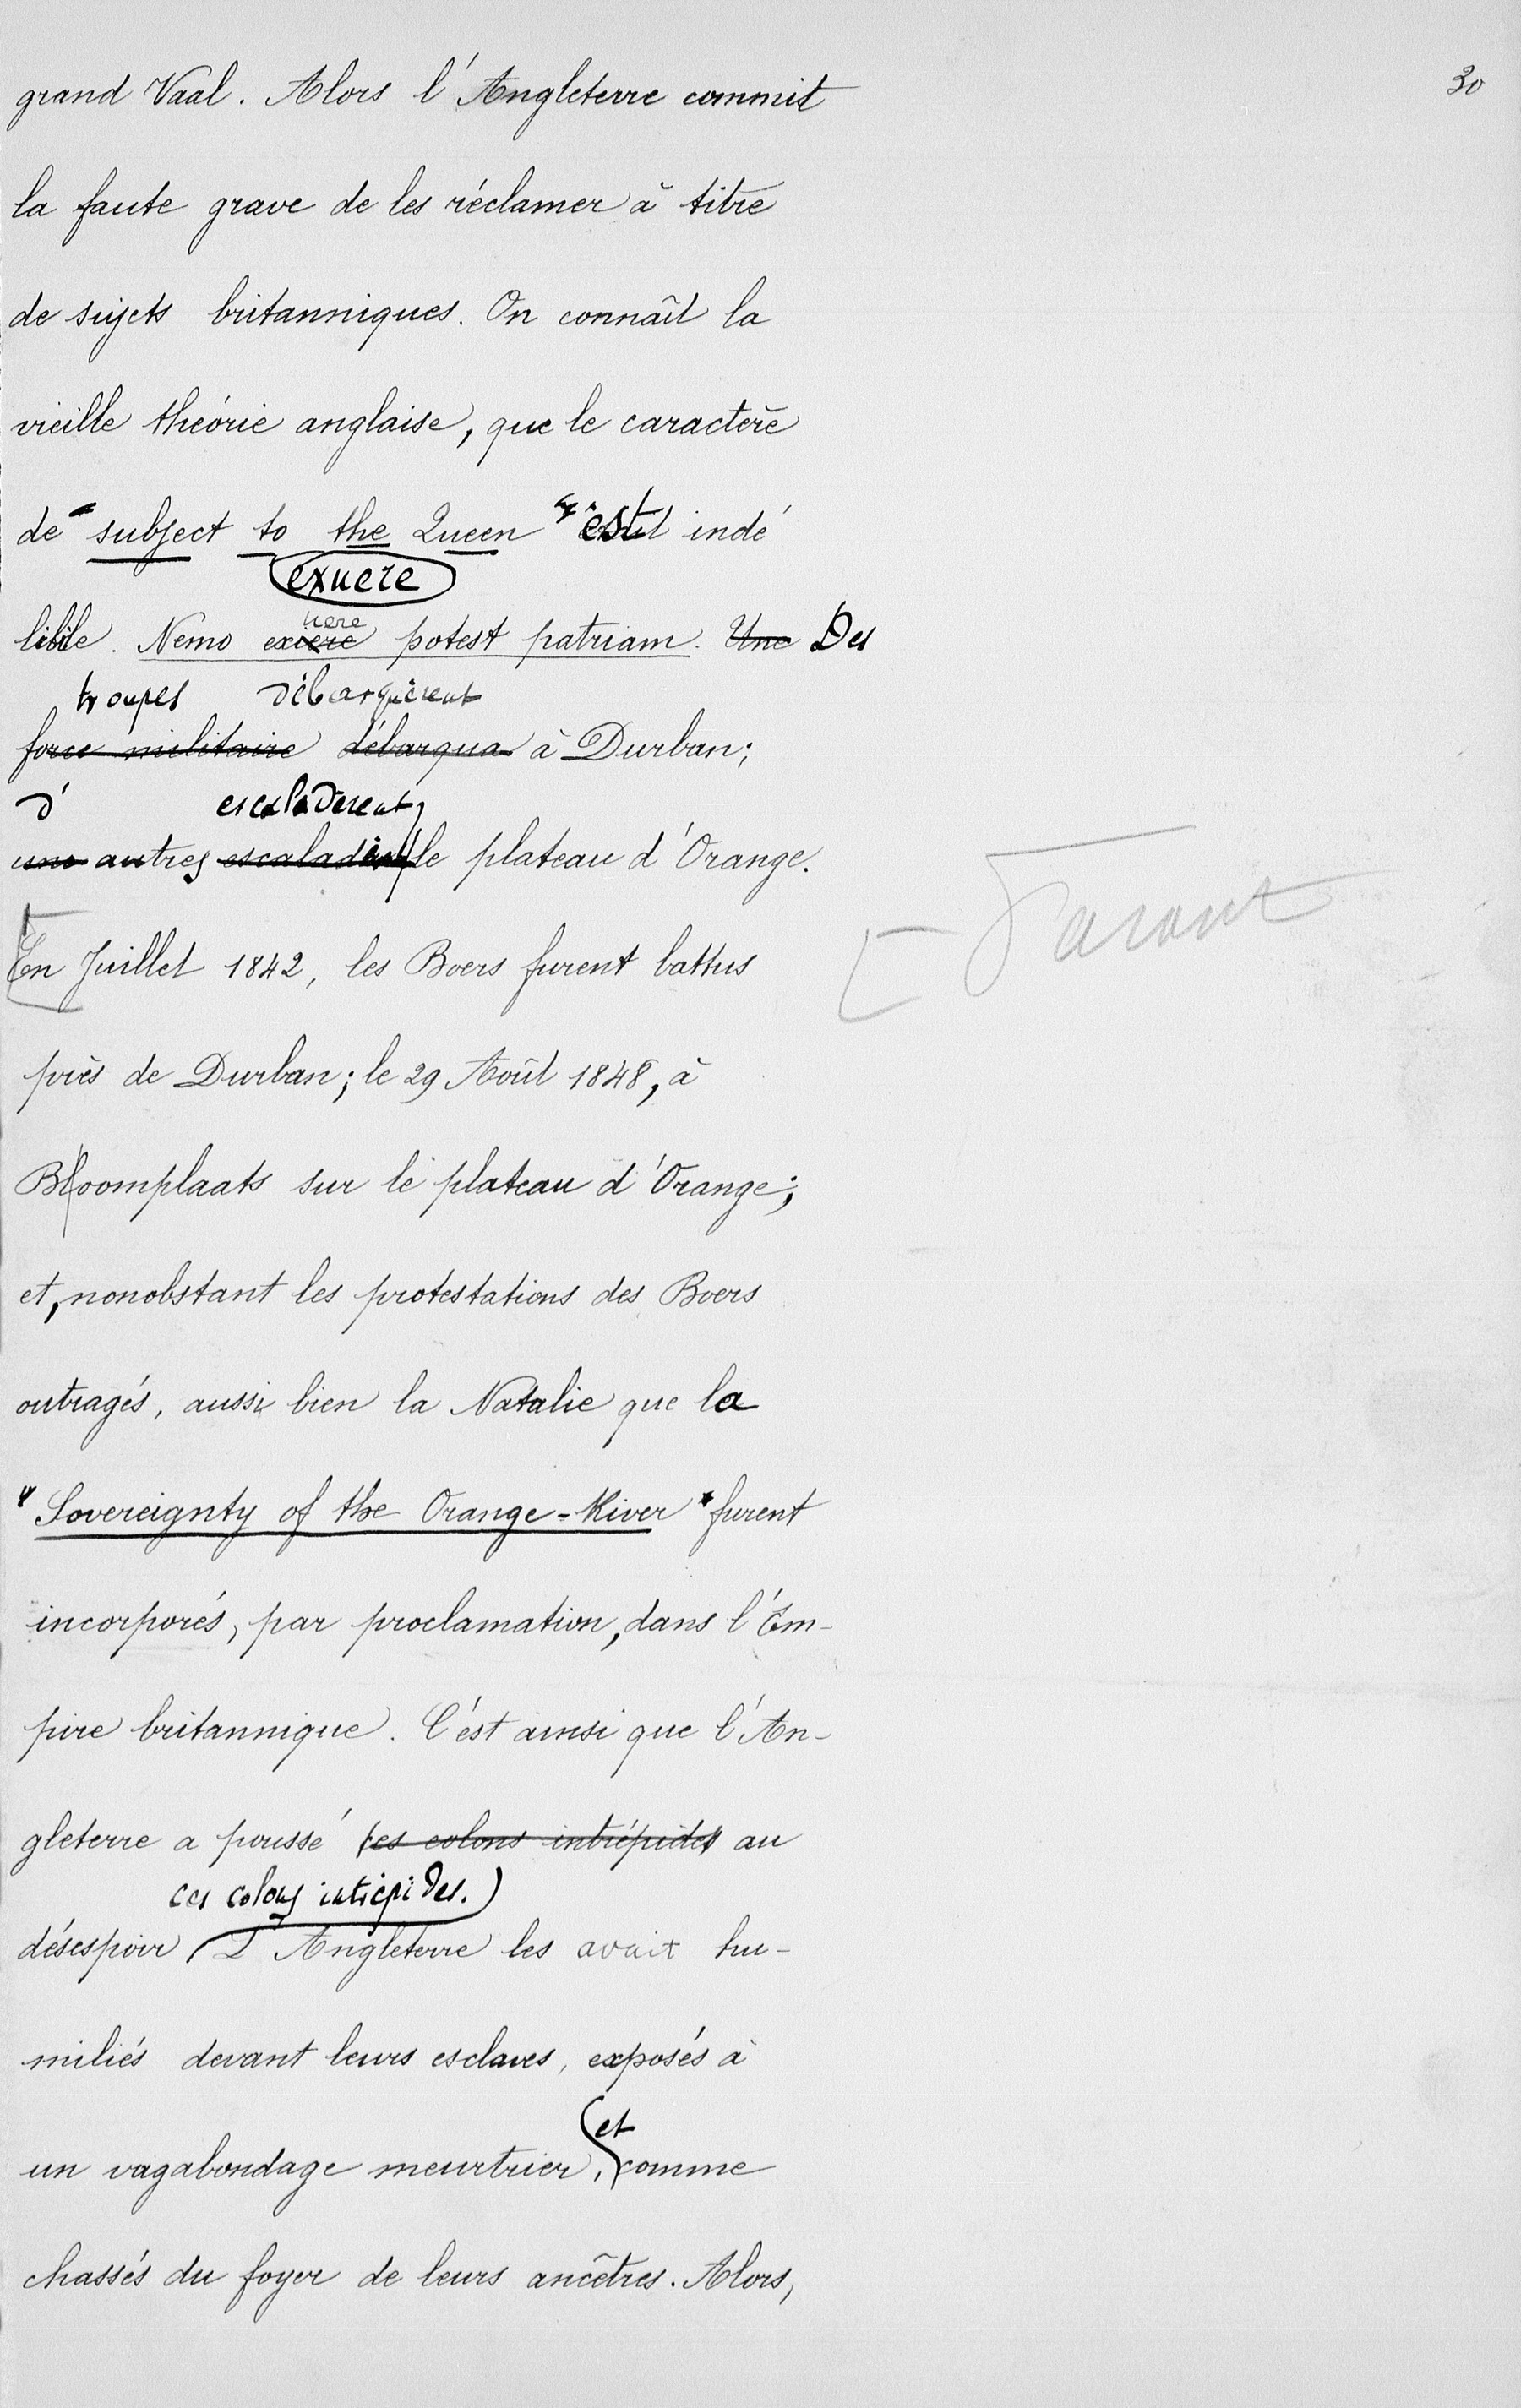 30
grand Vaal. Alors l'Angleterre commit
la faute grave de les réclamer à titre
de sujets britanniques. On connaît la
vieille théorie anglaise, que le caractère
de "subject to the Queen" est indé
exuere
libile. Nemo exuere potest patriam. Une Des
troupes débarquèrent
force militaire débarqua à Durban;
d' escaladèrent
une autres escaladèrent le plateau d'Orange.
En Juillet 1842, les Boers furent battus
près de Durban; le 29 Août 1848, à
Boomplaats sur le plateau d'Orange;
et, nonobstant les protestations des Boers
outragés, aussi bien la Natalie que la
"Sovereignty of the Orange-River" furent
incorporés, par proclamation, dans l'Em-
pire britannique. C'est ainsi que l'An-
gleterre a poussé ces colons intrépides au
ces colons intrépides.
désespoir L'Angleterre les avait hu-
miliés devant leurs esclaves, exposés à
et
un vagabondage meurtrier, comme
chassés du foyer de leurs ancêtres. Alors,